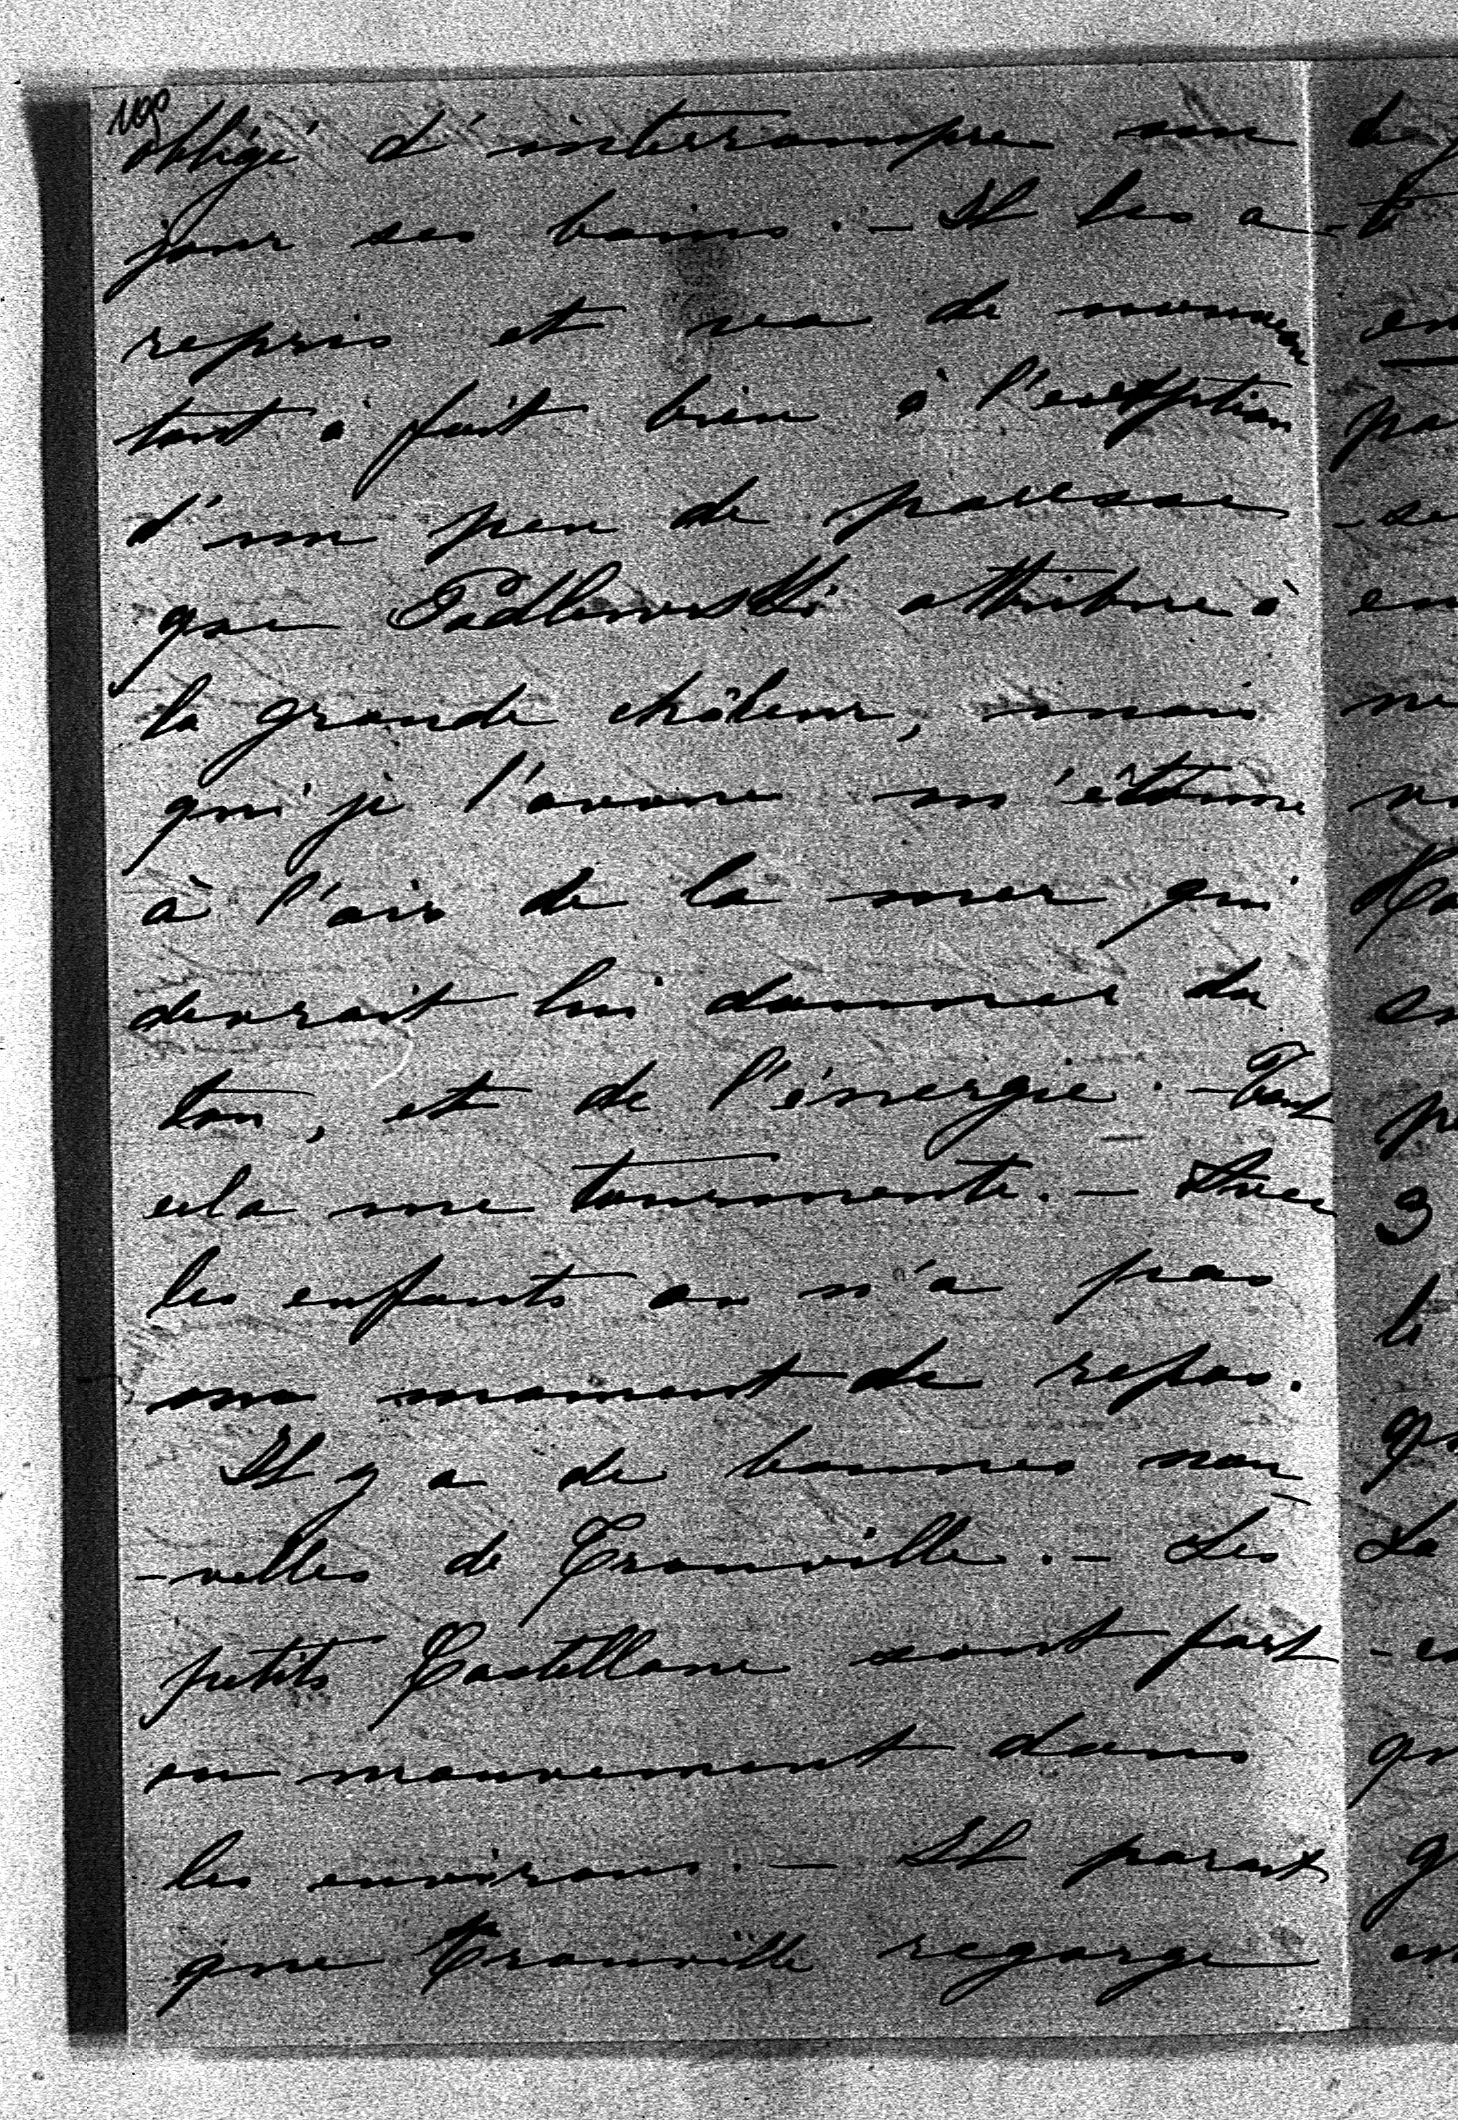 obligé d'interrompre un
jour ses bains. – Il les a
repris et va de nouveau
tout à fait bien à l'exception
d'un peu de paresse
que Podlewski attribue à
la grande châleur, mais
qui je l'avoue m'étonne
à l'air de la mer qui
devrait lui donner du
ton, et de l'énergie. – Tout
cela me tourmente. – Avec
les enfants on n'a pas
un moment de repos.
Il y a de bonnes nou
-velles de Trouville. – Les
petits Castellane sont fort
en mouvement dans
les environs. – Il parait
que Trouville regorge